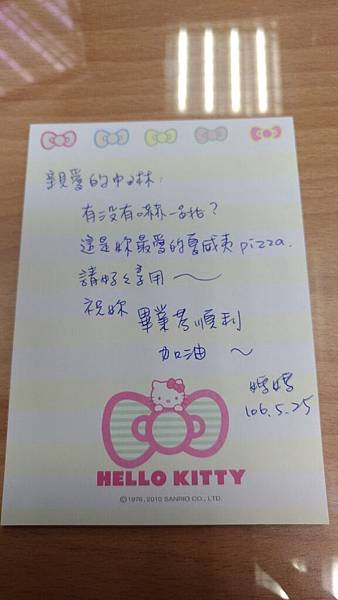 親愛的中琳:
有沒有嚇一跳?
這是妳最愛的夏威夷pizza.
請好好享用~
祝妳 畢業考順利
加油 ~
媽媽
106.5.25
HELLO KITTY
©1976, 2010 SANRIO CO., LTD.